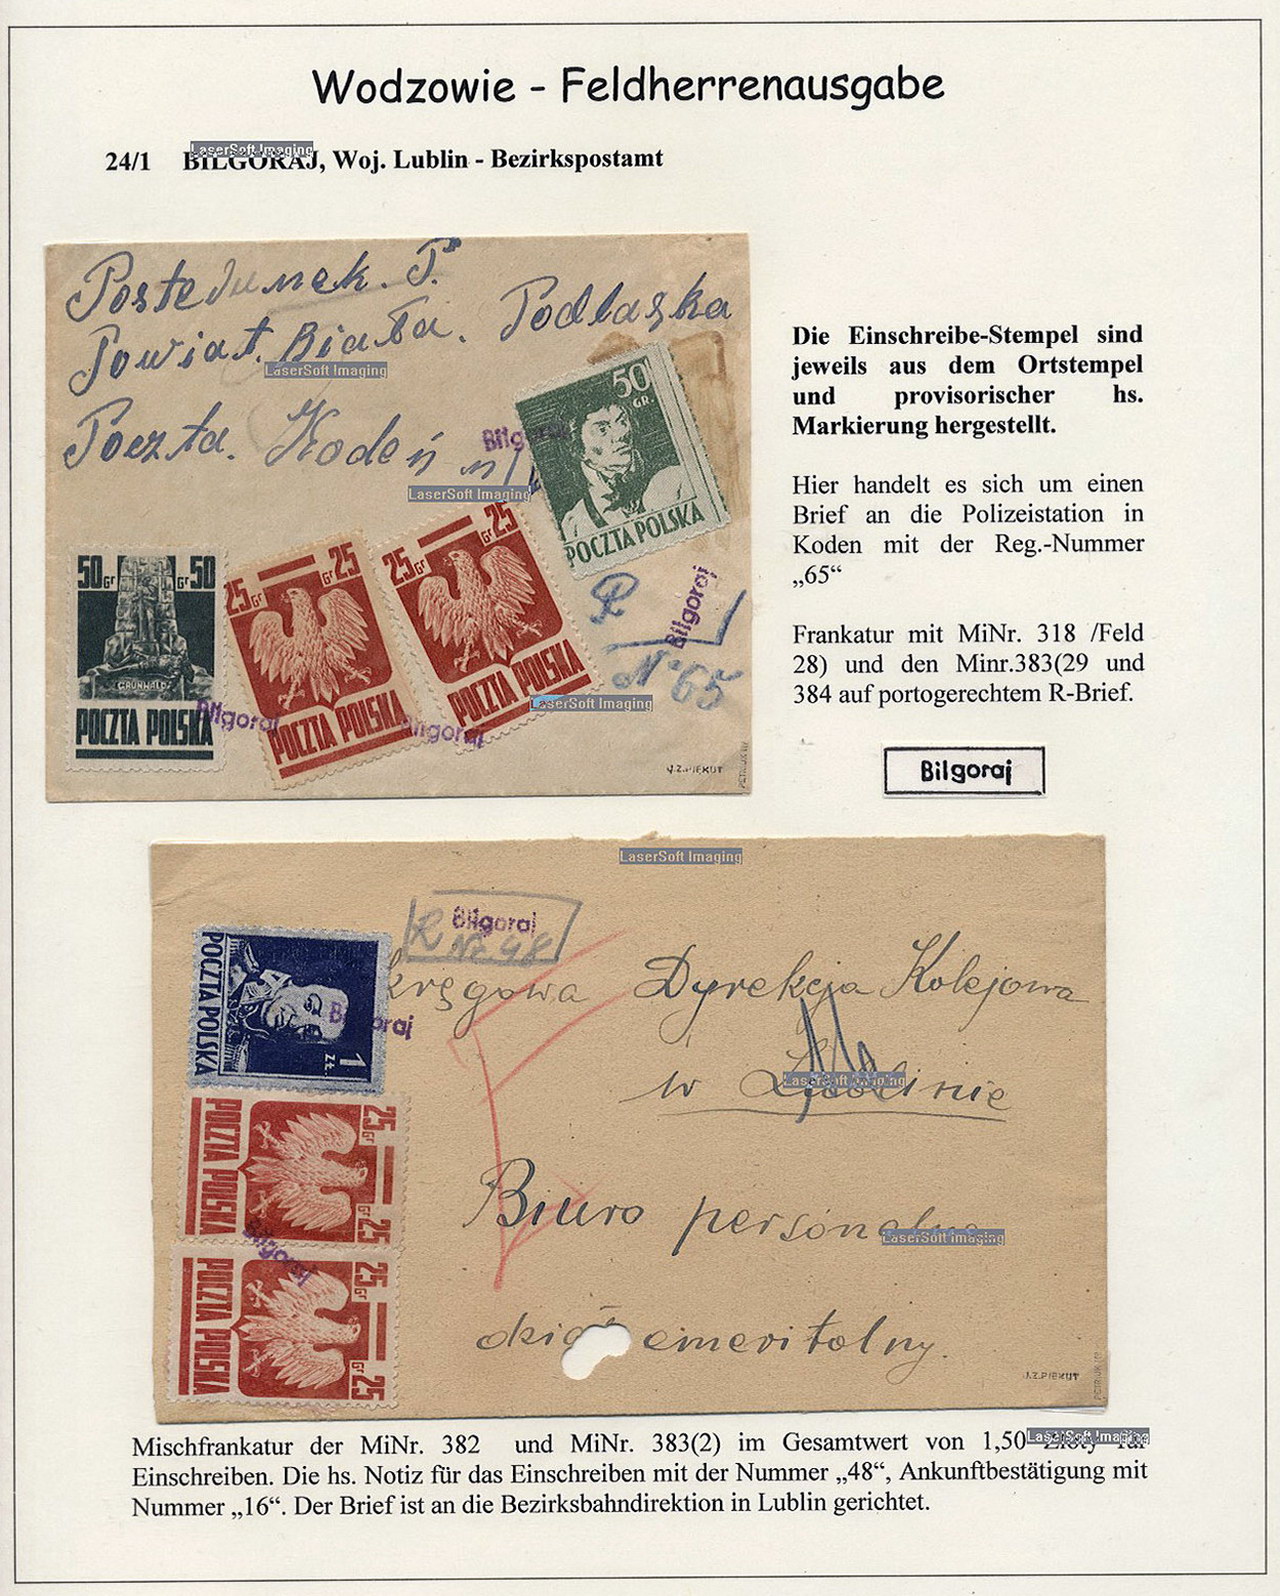 Wodzowie - Feldherrenausgabe
24/1 BILGORAJ, Woj. Lublin - Bezirkspostamt
LaserSoft Imaging
Postedunek. P.
Powiat. Biała. Podlaska
LaserSoft Imaging
Poczta. Kodeń n/
LaserSoft Imaging
Bilgoraj
50 GR.
POCZTA POLSKA
50 Gr Gr 50
GRUNWALD
POCZTA POLSKA
25 Gr Gr 25
POCZTA POLSKA
25 Gr Gr 25
POCZTA POLSKA
R
Bilgoraj
N° 65
LaserSoft Imaging
Bilgoraj
Bilgoraj
J.Z.PIEKUT
Die Einschreibe-Stempel sind
jeweils aus dem Ortstempel
und provisorischer hs.
Markierung hergestellt.
Hier handelt es sich um einen
Brief an die Polizeistation in
Koden mit der Reg.-Nummer
„65“
Frankatur mit MiNr. 318 /Feld
28) und den Minr.383(29 und
384 auf portogerechtem R-Brief.
Bilgoraj
LaserSoft Imaging
R Bilgoraj
Nr. 48
POCZTA POLSKA
1 ZŁ.
Bilgoraj
kręgowa Dyrekcja Kolejowa
w Lublinie
LaserSoft Imaging
25 Gr Gr 25
POCZTA POLSKA
Bilgoraj
25 Gr Gr 25
POCZTA POLSKA
Biuro personalne
LaserSoft Imaging
emerytalny.
J.Z.PIEKUT
Mischfrankatur der MiNr. 382 und MiNr. 383(2) im Gesamtwert von 1,50 Zloty für
LaserSoft Imaging
Einschreiben. Die hs. Notiz für das Einschreiben mit der Nummer „48“, Ankunftbestätigung mit
Nummer „16“. Der Brief ist an die Bezirksbahndirektion in Lublin gerichtet.